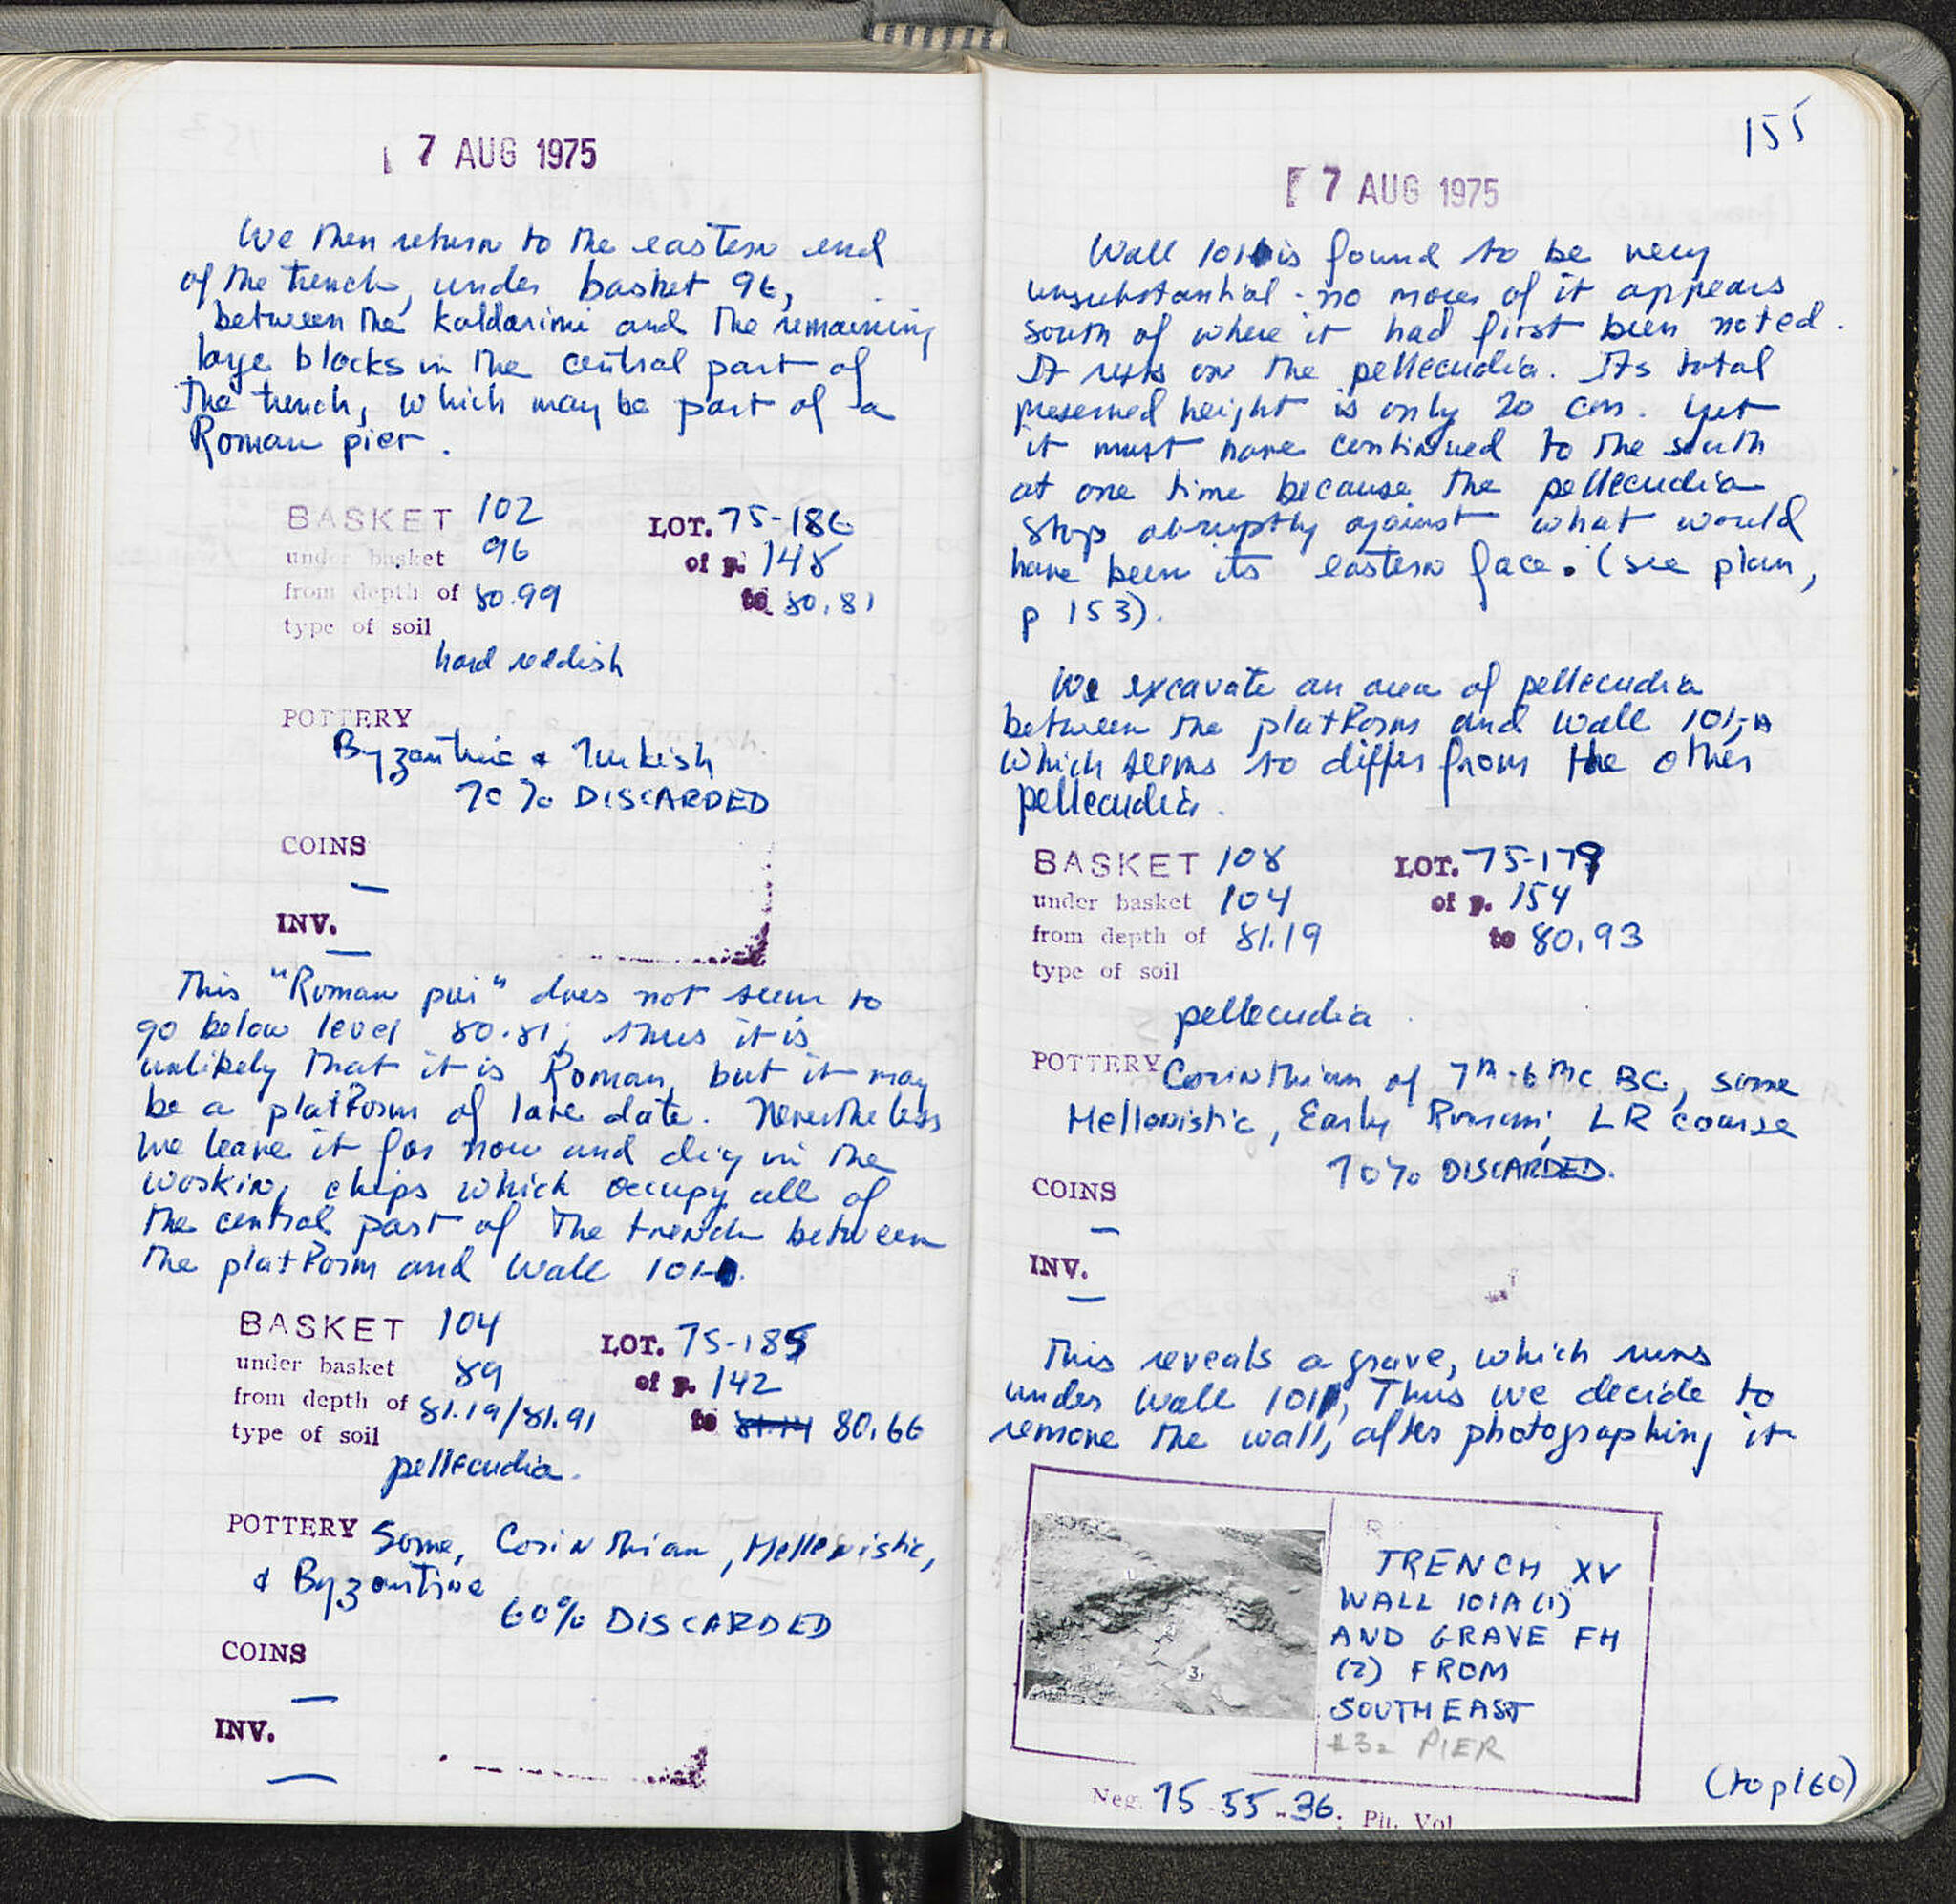 7 AUG 1975
We then return to the eastern end
of the trench, under basket 96,
between the kaldarimi and the remaining
large blocks in the central part of
the trench, which may be part of a
Roman pier.
BASKET 102 LOT. 75-186
under basket 96 of p. 148
from depth of 80.99 to 80.81
type of soil
hard reddish
POTTERY
Byzantine & Turkish
70% DISCARDED
COINS
—
INV.
—
This "Roman pier" does not seem to
go below level 80.81; thus it is
unlikely that it is Roman, but it may
be a platform of late date. Nevertheless
we leave it for now and dig in the
working chips which occupy all of
the central part of the trench between
the platform and wall 101
BASKET 104 LOT. 75-185
under basket 89 of p. 142
from depth of 81.19/81.91 to 80.66
type of soil
pellecudia.
POTTERY Some, Corinthian, Hellenistic,
& Byzantine
60% DISCARDED
COINS
—
INV.
—
155
7 AUG 1975
Wall 101 is found to be very
unsubstantial - no more of it appears
south of where it had first been noted.
It rests on the pellecudia. Its total
preserved height is only 20 cm. Yet
it must have continued to the south
at one time because the pellecudia
stop abruptly against what would
have been its eastern face. (see plan,
p 153).
We excavate an area of pellecudia
between the platform and wall 101-A
which seems to differ from the other
pellecudia.
BASKET 108 LOT. 75-179
under basket 104 of p. 154
from depth of 81.19 to 80.93
type of soil
pellecudia
POTTERY Corinthian of 7th-6th c BC, some
Hellenistic, Early Roman; LR coarse
70% DISCARDED.
COINS
—
INV.
—
This reveals a grave, which runs
under wall 101, Thus we decide to
remove the wall, after photographing it
1
2
3
TRENCH XV
WALL 101A (1)
AND GRAVE FH
(2) FROM
SOUTHEAST
#3= PIER
(to p160)
Neg. 75-55-36; Pü. Vol